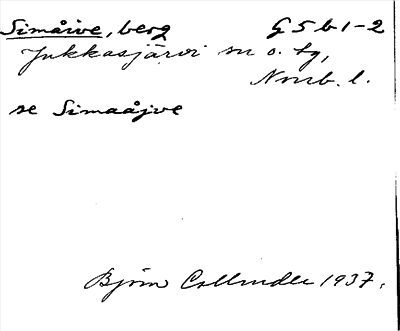 Simåive, berg G 5 b 1-2
Jukkasjärvi sn o. tg,
Norrb. l.
se Simaåjve
Björn Collinder 1937.